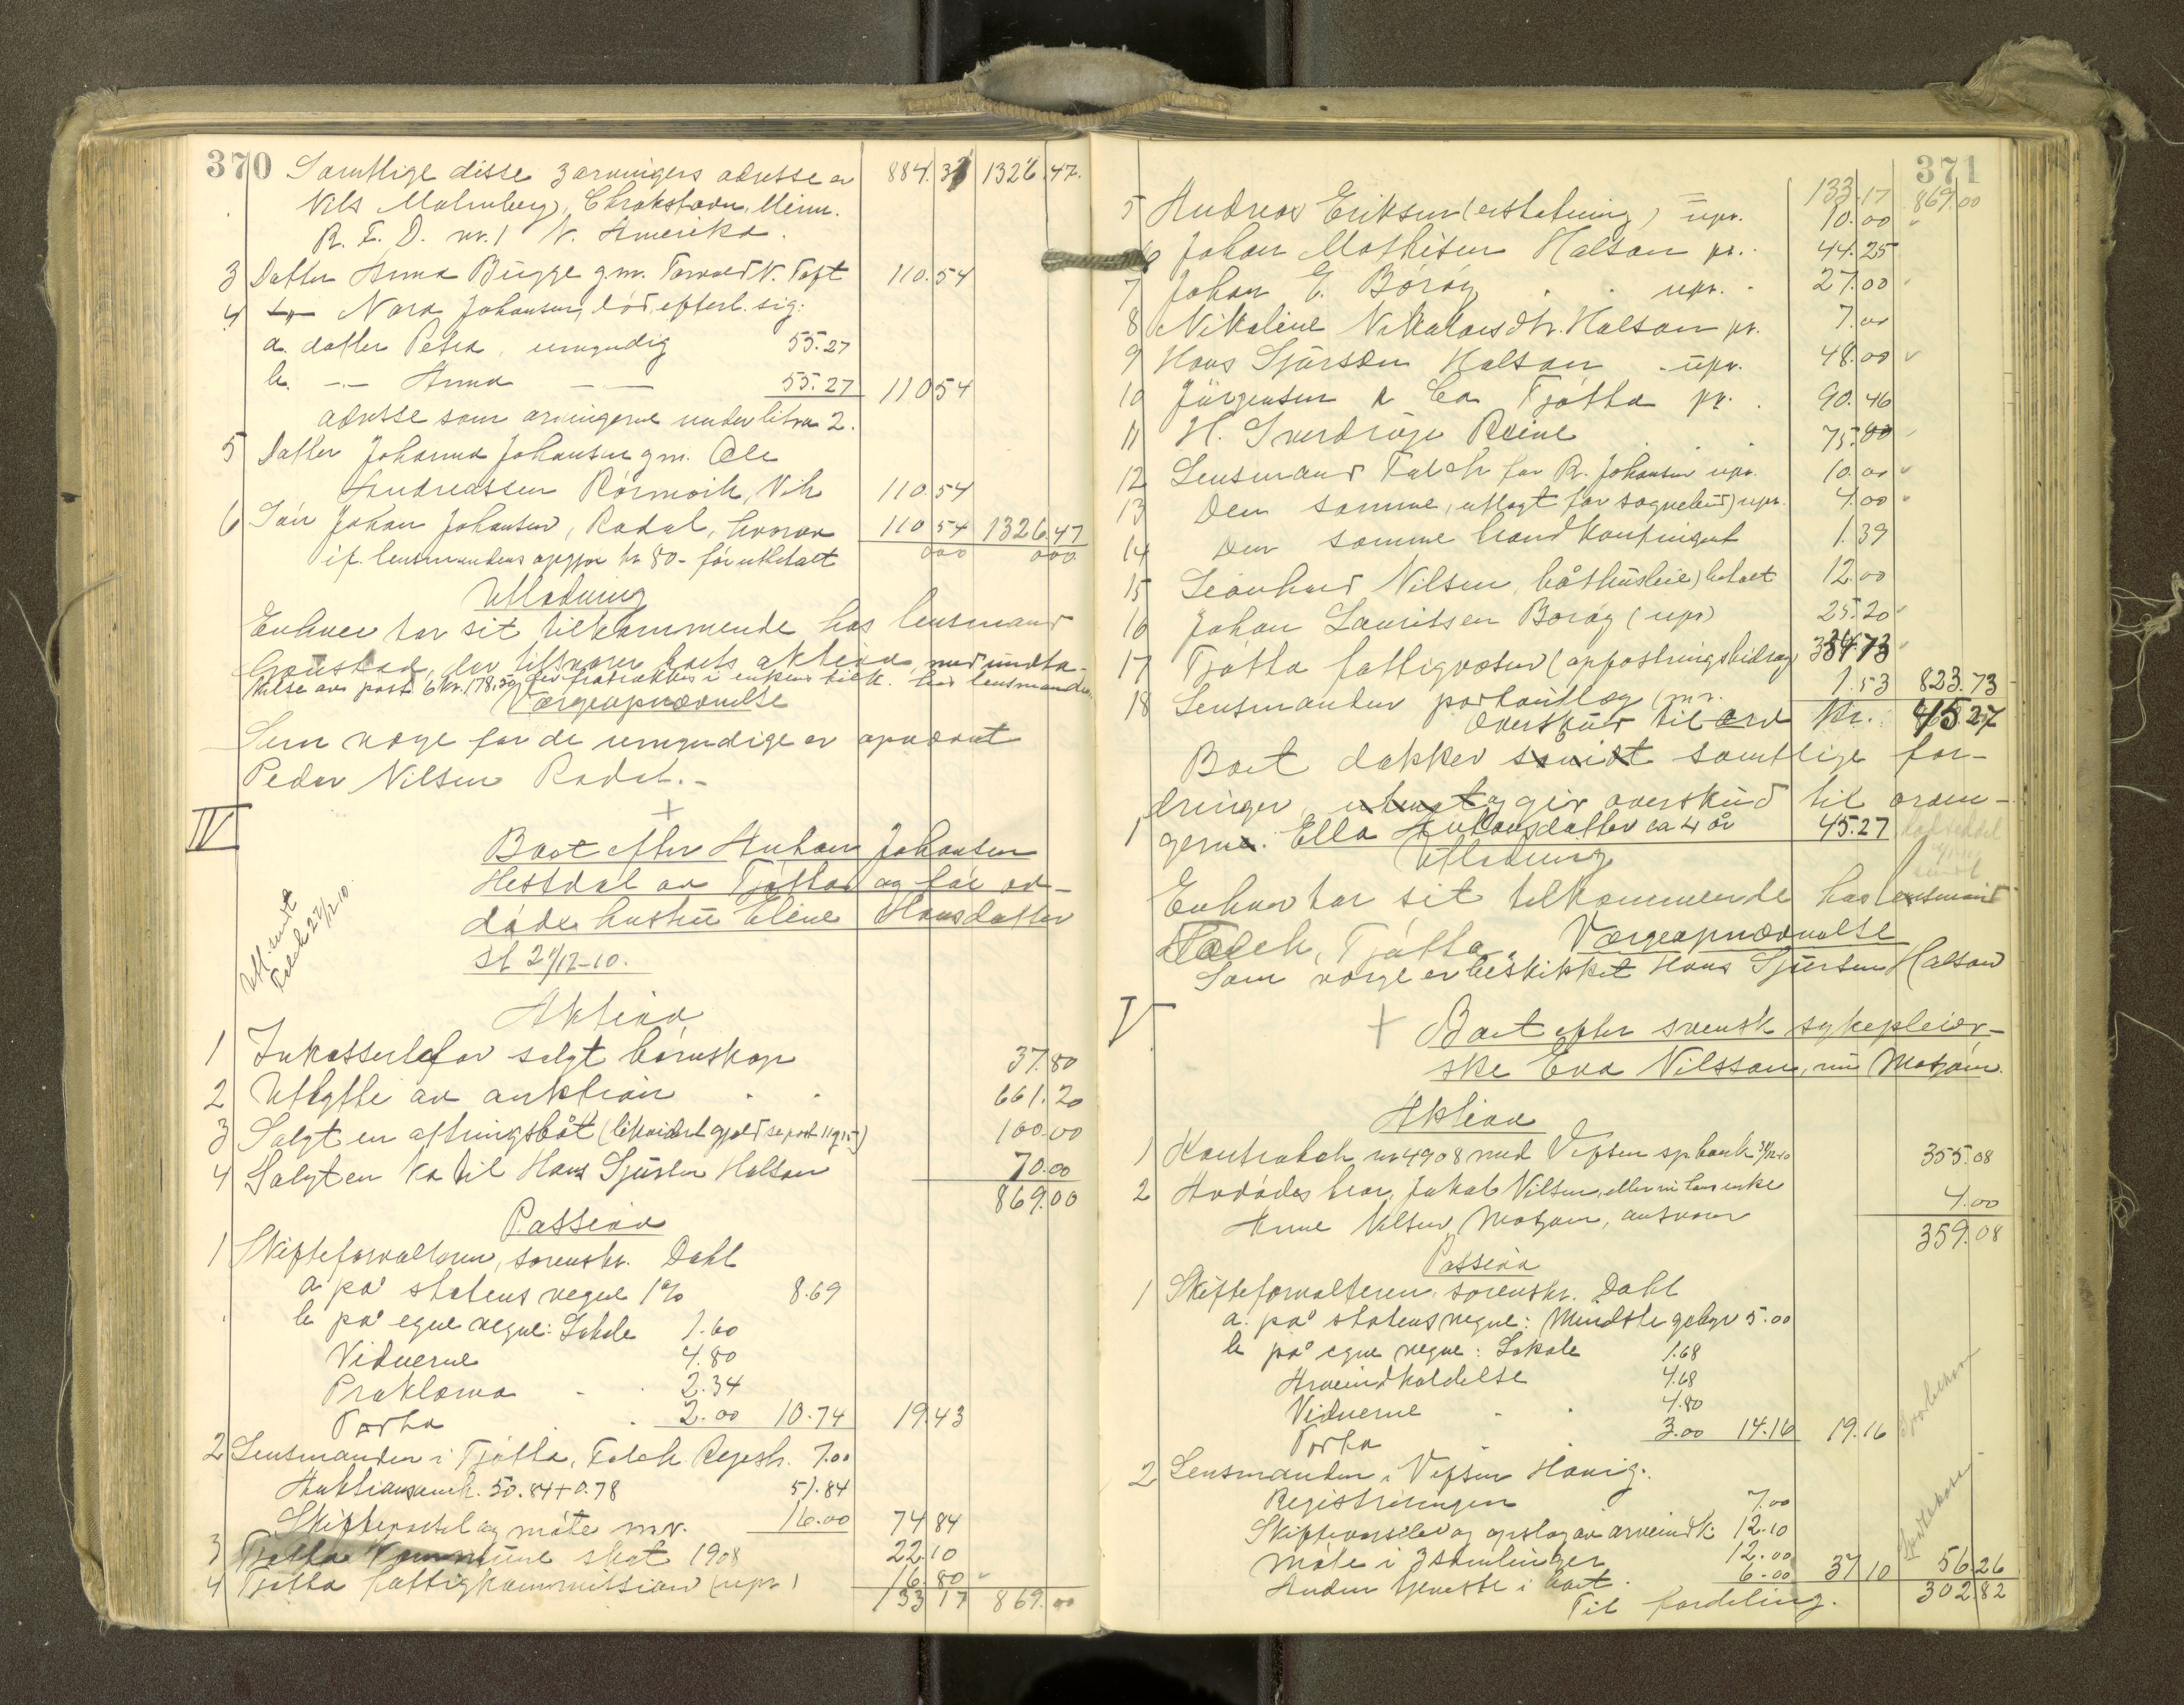 370
Samtlige disse 3 arvingers adresse er 884.3 1326.47.
Nils Malmberg, Minn.
R. F. D. nr. 1 N. Amerika.
3 Datter Anna Bugge gm. Torvald N. Toft 110.54
4 -"- Nora Johansen, død, efterl. sig:
a. datter Petra, umyndig 55.27
b. -.- Anna -- -- 55.27 110 54
adresse som arvingerne under litra 2.
5 Datter Johanna Johansen gm. Ole
Andreassen Rørmoik, Vik 110.54
6 Søn Johan Johansen, Radal, hvorav 110 54 1326.47
if. lensmandens opgjør kr 80.- før utbetalt 000 000
Utlodning
Enhver har sit tilkommende hos lensmand
der tilsvarer boets aktiva, med undta-
kelse av post 6 kr. 178.50 der fratrækkes i enkens tilk. hos lensmanden
Værgeopnævnelse
Som værge for de umyndige er opnævnt
Peder Nilsen Radal.-
IV
+
Boet efter Anton Johansen
Hestdal av Tjøtta og før av-
døde hustru Eline Hansdatter
sl 21/12-10.
Utl. sendt
Falch 27/12 10
Aktiva
1 Inkassert for solgt børnskap 37.80
2 Utbytte av auktion . . 661.20
3 Solgt en aftringsbåt (likvidert gjæld se post 11 og 15) 100.00
4 Solgt en ko til Hans Sjursen Halsan 70.00
869.00
Passiva
1 Skifteforvalteren, sorenskr. Dahl
a på statens vegne 1% 8.69
b på egne vegne: Lokale 1.60
Vidnerne 4.80
Proklama - . 2.34
Porto . . 2.00 10.74 19.43
2 Lensmanden i Tjøtta, Falch Regestr. 7.00
Auktionsomk. 50.84+0.78 51.84
Skiftevarsel og møte m.v. 16.00 74 84
3 Tjøtta Kommune skat 1908 22.10
4 Tjøtta fattigkommission (upr.) 16.80
133 17 869.00
371
133.17 869.00
5 Andreas Eriksen (erstatning) upr. 10.00
6 Johan Mathisen Halsan pr. 44.25
7 Johan E. Børøy . . upr. - 27.00
8 Nikoline Nikolaisdtr. Halsan pr. 7.00
9 Hans Sjursen Halsan - upr. 48.00
10 Jürgensen & Co Tjøtta pr. . 90.46
11 H. Sverdrup Reine . . . 75.00
12 Lensmand Falch for R. Johansen upr. 10.00
13 Den samme, utlagt for sognebud) upr. 4.00
14 Den samme brand kontingent 1.39
15 Leonhard Nilsen, båthusleie) betalt 12.00
16 Johan Lauritsen Børøy (upr) 25.20
17 Tjøtta fattigvæsen (opfostringsbidrag) 334.73
18 Lensmanden portoutlæg m.v. 1.53 823.73
overskud til arv kr. 45 27
Boet dækker samtlige for-
dringer, og gir overskud til arvin-
1 gerne. Ella Antonsdatter ca 4 år 45.27
Utlodning
Enhver har sit tilkommende hos lensmand
Falch, Tjøtta. Værgeopnævnelse
Som værge er beskikket Hans Sjursen Halsan
V
+ Boet efter svensk sykepleier-
ske Eva Nilsson, Mosjøen.
Aktiva
1 Kontrabok nr 4908 med Vefsen spbank 31/12 10 355.08
2 Avdødes bror, Jakob Nilsen, eller nu hans enke
Anne Nilsen Mosjøen, ansvar 4.00
359.08
Passiva
1 Skifteforvalteren sorenskr. Dahl
a. på statens vegne: Mindste gebyr 5.00
b på egne vegne: Lokale 1.68
Arveindkaldelse 4.68
Vidnerne - . 4.80
Porto - . 3.00 14.16 19.16
2 Lensmanden i Vefsen Havig:
Registreringen 7.00
Skiftevarsler og opslag av arveindk. 12.10
Møte i 3 samlinger 12.00
Anden tjeneste i boet . 6.00 37 10 56.26
Til fordeling. 302.82